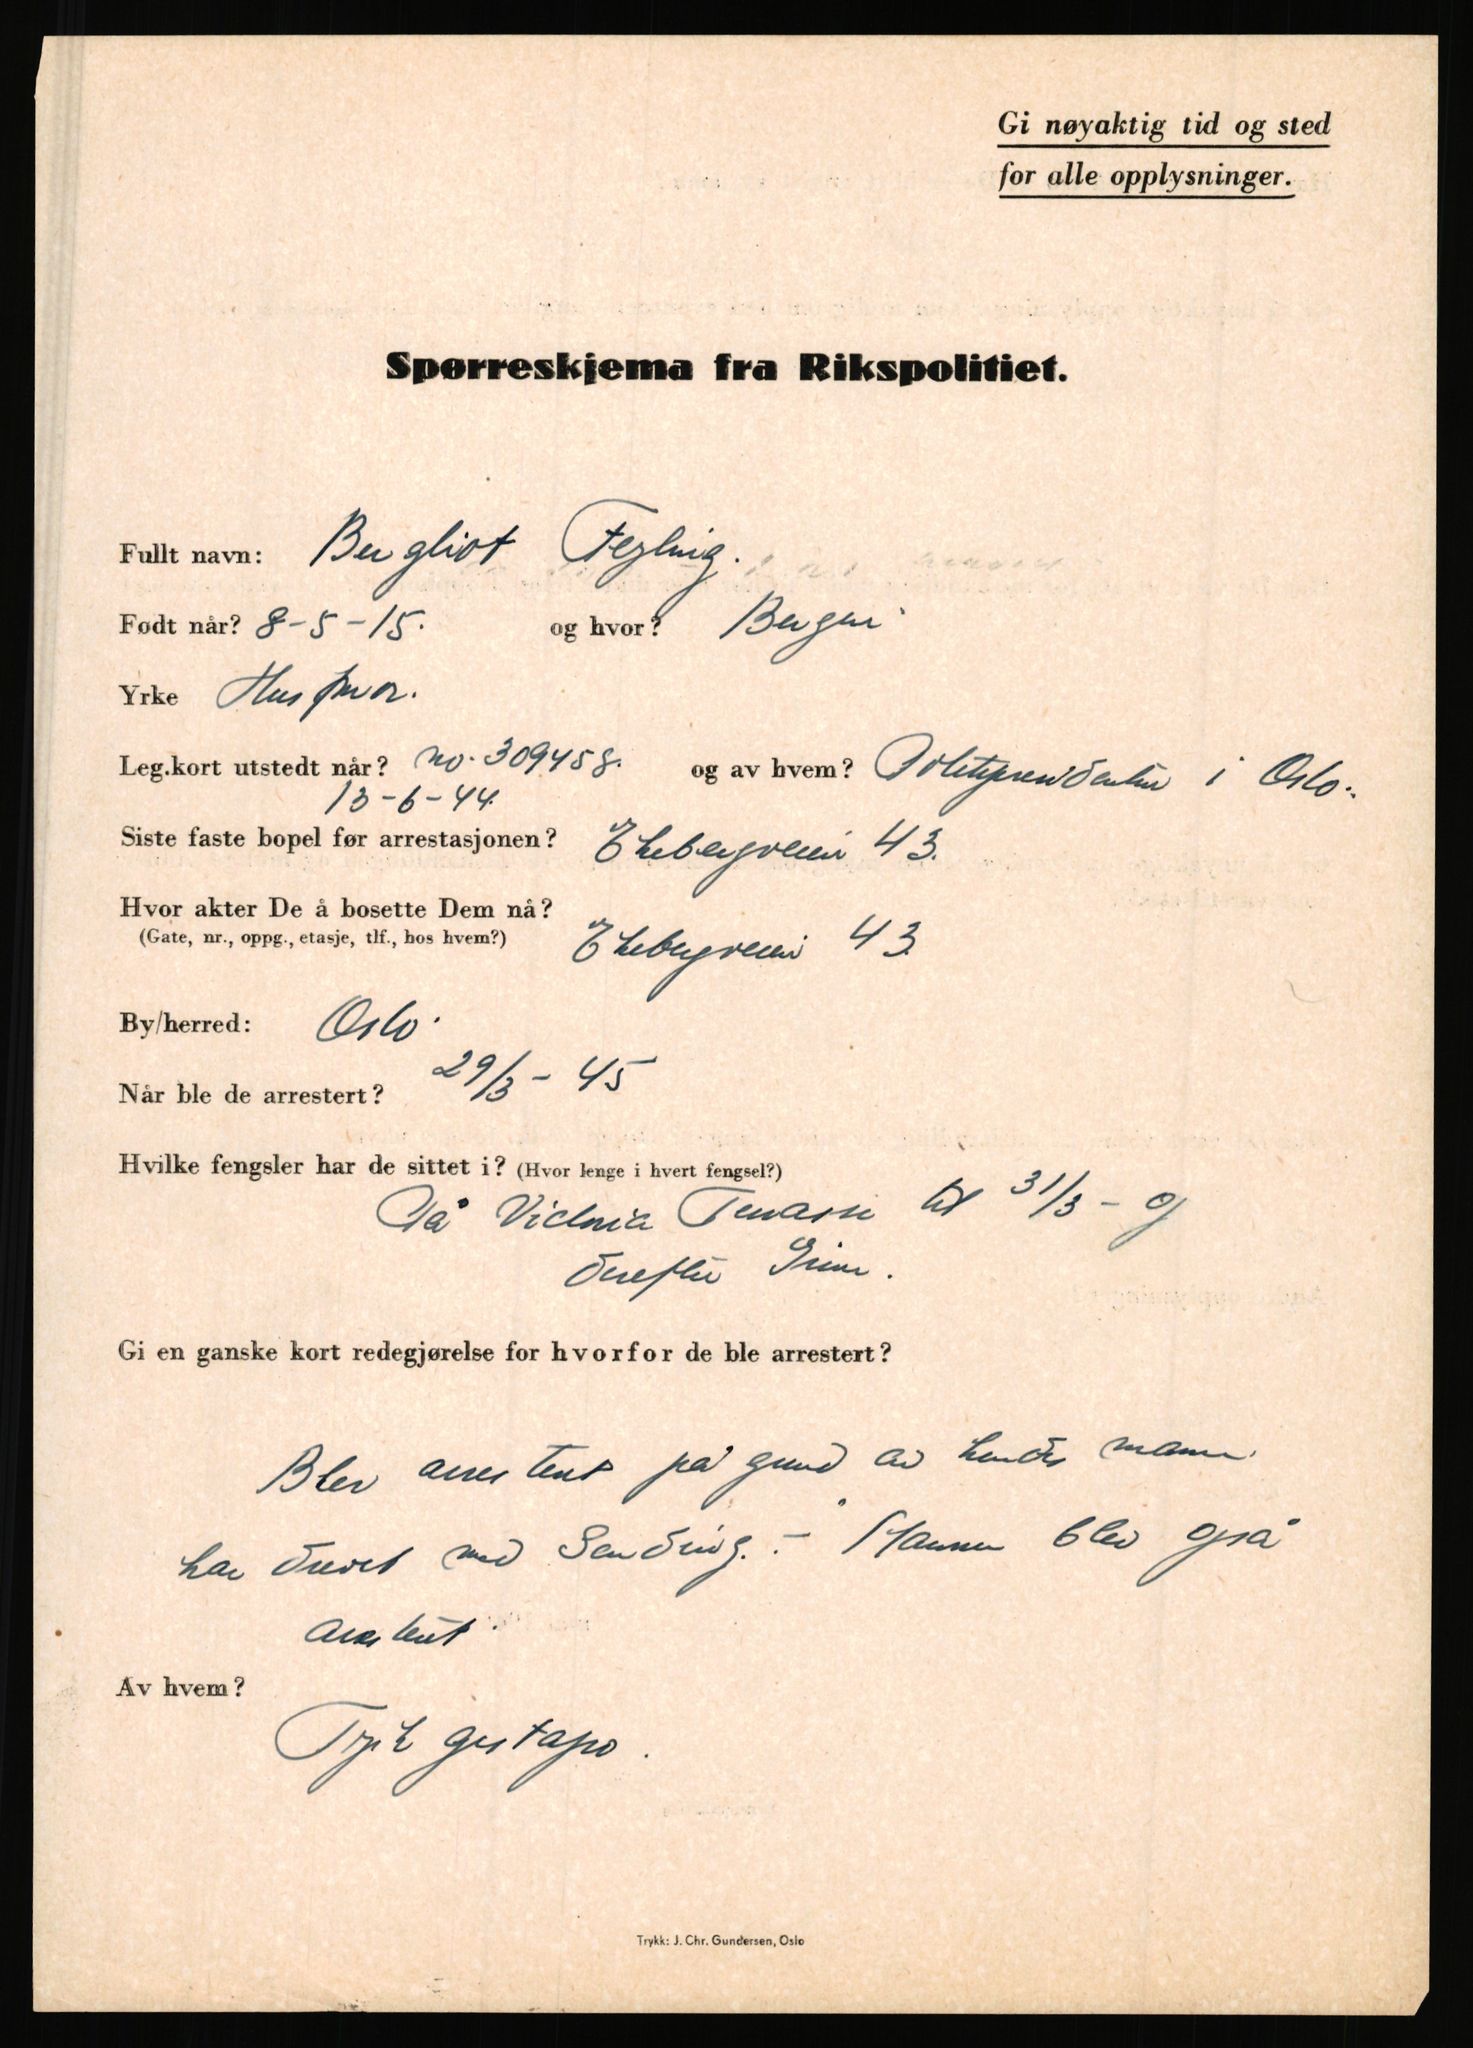 Gi nøyaktig tid og sted
for alle opplysninger.
Spørreskjema fra Rikspolitiet.
Fullt navn: Bergliot Feyling.
Født når? 8-5-15. og hvor? Bergen
Yrke Husmor.
Leg.kort utstedt når? no. 309458. og av hvem? Politipresidenten i Oslo.
13-6-44.
Siste faste bopel før arrestasjonen? Ekebergveien 43.
Hvor akter De å bosette Dem nå?
(Gate, nr., oppg., etasje, tlf., hos hvem?) Ekebergveien 43.
By/herred: Oslo.
Når ble de arrestert? 29/3-45
Hvilke fengsler har de sittet i? (Hvor lenge i hvert fengsel?)
På Victoria Terasse til 31/3 - og
derefter Grini.
Gi en ganske kort redegjørelse for hvorfor de ble arrestert?
Blev arrestert på grund av hendes mann
har drevet med Sending. - Mannen blev også
arrestert.
Av hvem?
Tysk gestapo.
Trykk: J. Chr. Gundersen, Oslo